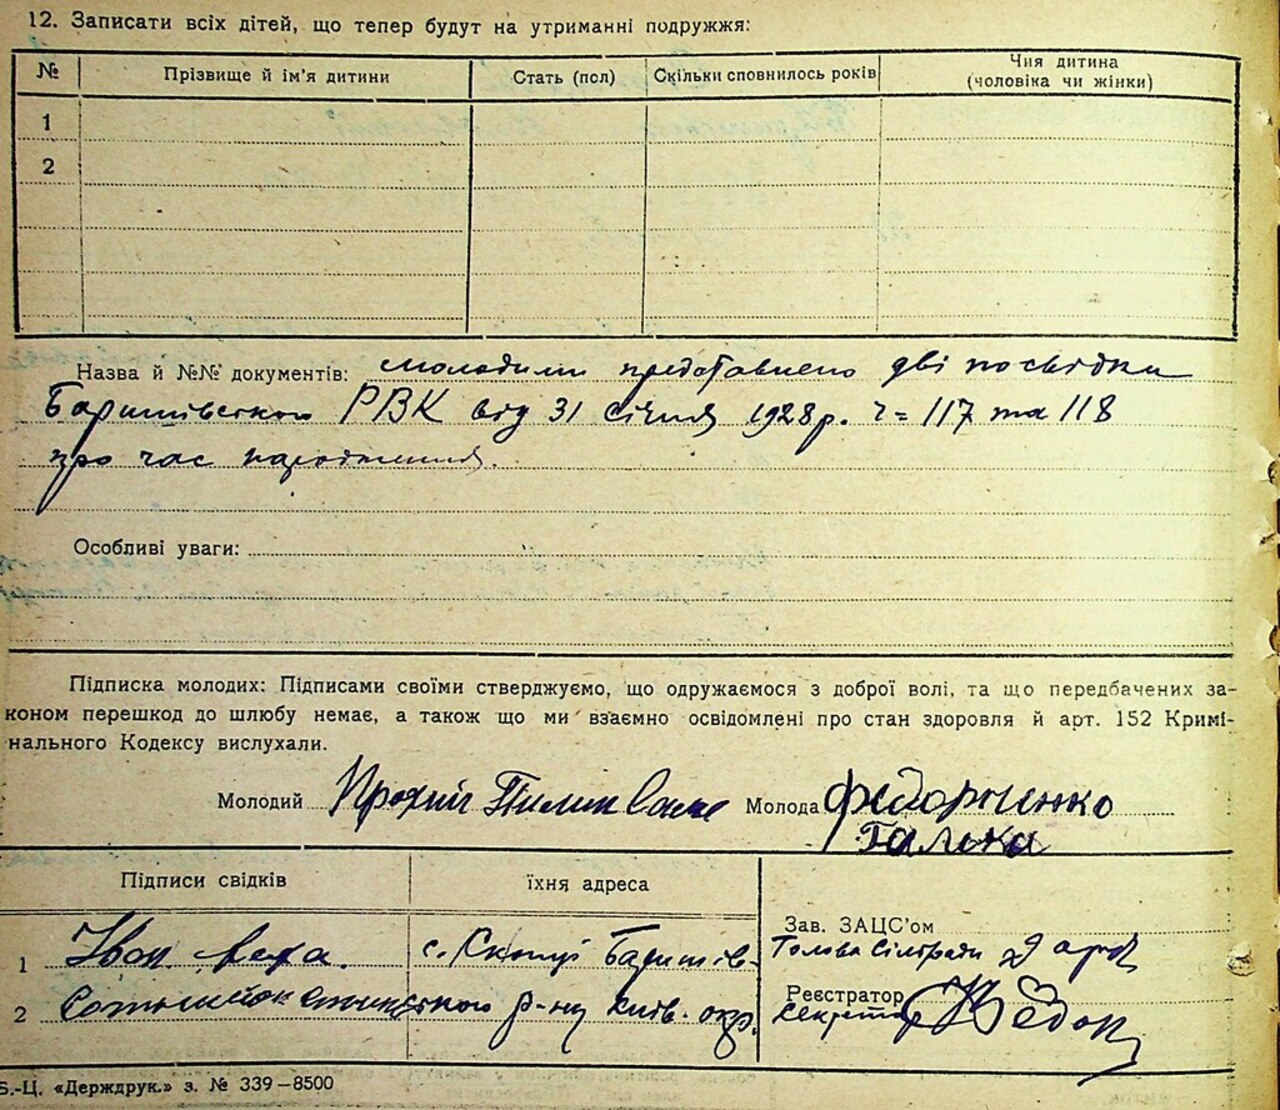 12. Записати всіх дітей, що тепер будут на утриманні подружжя:
№ Прізвище й ім'я дитини Стать (псл) Скільки сповнилось років Чия дитина (чоловіка чи жінки)
1
2
Назва й №№ документів: молодими представлено дві посвідки
Баришівського РВК від 31 січня 1928 р. ч = 117 та 118
про час народження.
Особливі уваги:
Підписка молодих: Підписами своїми стверджуємо, що одружаємося з доброї волі, та що передбачених за-
коном перешкод до шлюбу немає, а також що ми взаємно освідомлені про стан здоровля й арт. 152 Кримі-
нального Кодексу вислухали.
Молодий Молода Федорченко
Галька
Підписи свідків їхня адреса
Зав. ЗАЦС'ом
1 Іван с. Скопці Баришів- Голова Сільради
Реєстратор
2 ського р-ну Київ. окр. Секретар
Б.-Ц. «Держдрук.» з. № 339–8500